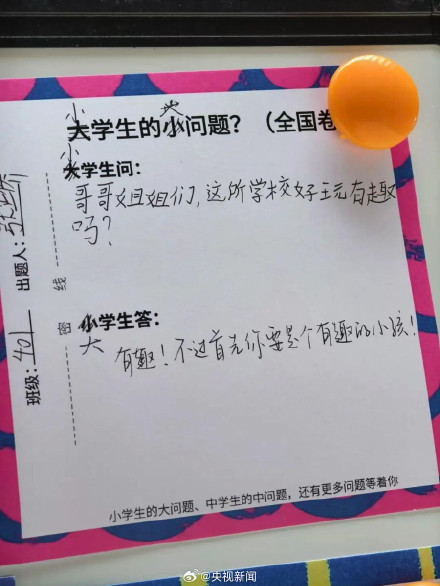 小学生的大问题？（全国卷
小学生问：
哥哥姐姐们，这所学校好玩有趣
吗？
大学生答：
有趣！不过首先你要是个有趣的小孩！
班级：401 出题人：
密 线
小学生的大问题、中学生的中问题，还有更多问题等着你
@央视新闻